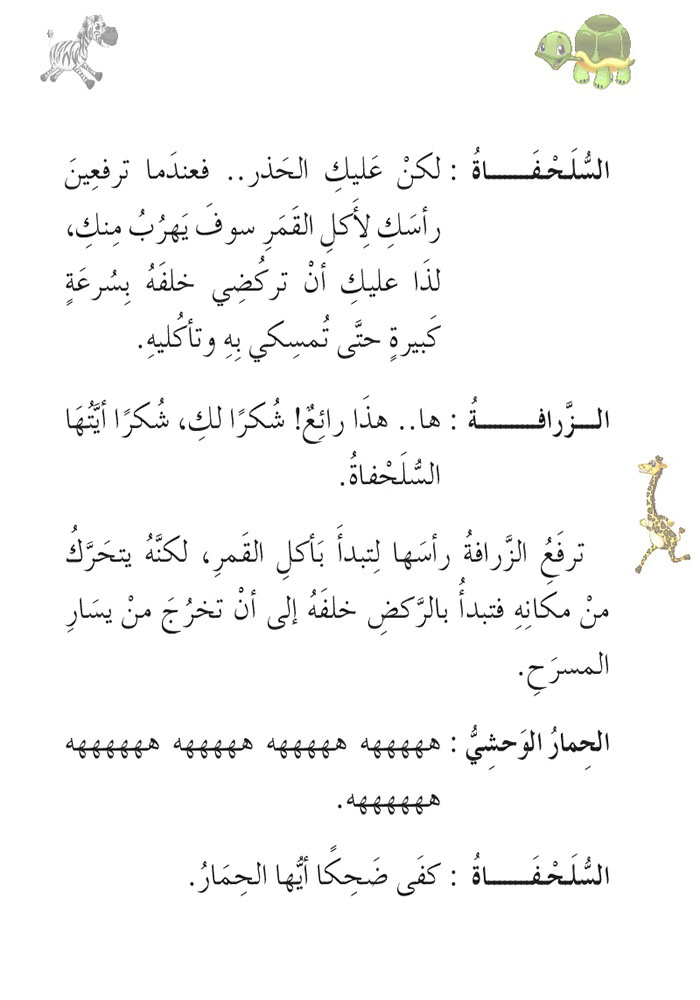 السُّلَحْفَـــــــاةُ : لكنْ عَليكِ الحَذر.. فعندَما ترفعِينَ
رأسَكِ لِأَكلِ القَمَرِ سوفَ يَهرُبُ مِنكِ،
لذَا عليكِ أنْ تركُضِي خلفَهُ بِسُرعَةٍ
كَبيرةٍ حتَّى تُمسِكي بِهِ وتأكُليهِ.
الـــزَّرافـــــــــةُ : ها.. هذَا رائِعٌ! شُكرًا لكِ، شُكرًا أيَّتُهَا
السُّلَحْفاةُ.
ترفَعُ الزَّرافةُ رأسَها لِتبدأَ بَأكلِ القَمرِ، لكنَّهُ يتحَرَّكُ
منْ مكَانِهِ فتبدأُ بالرَّكضِ خلفَهُ إلى أنْ تخرُجَ منْ يسَارِ
المسرَحِ.
الحِمارُ الوَحشِيُّ : هههههه هههههه هههههه ههههههه
ههههههه.
السُّلَحْفَـــــــاةُ : كفَى ضَحِكًا أيُّها الحِمَارُ.